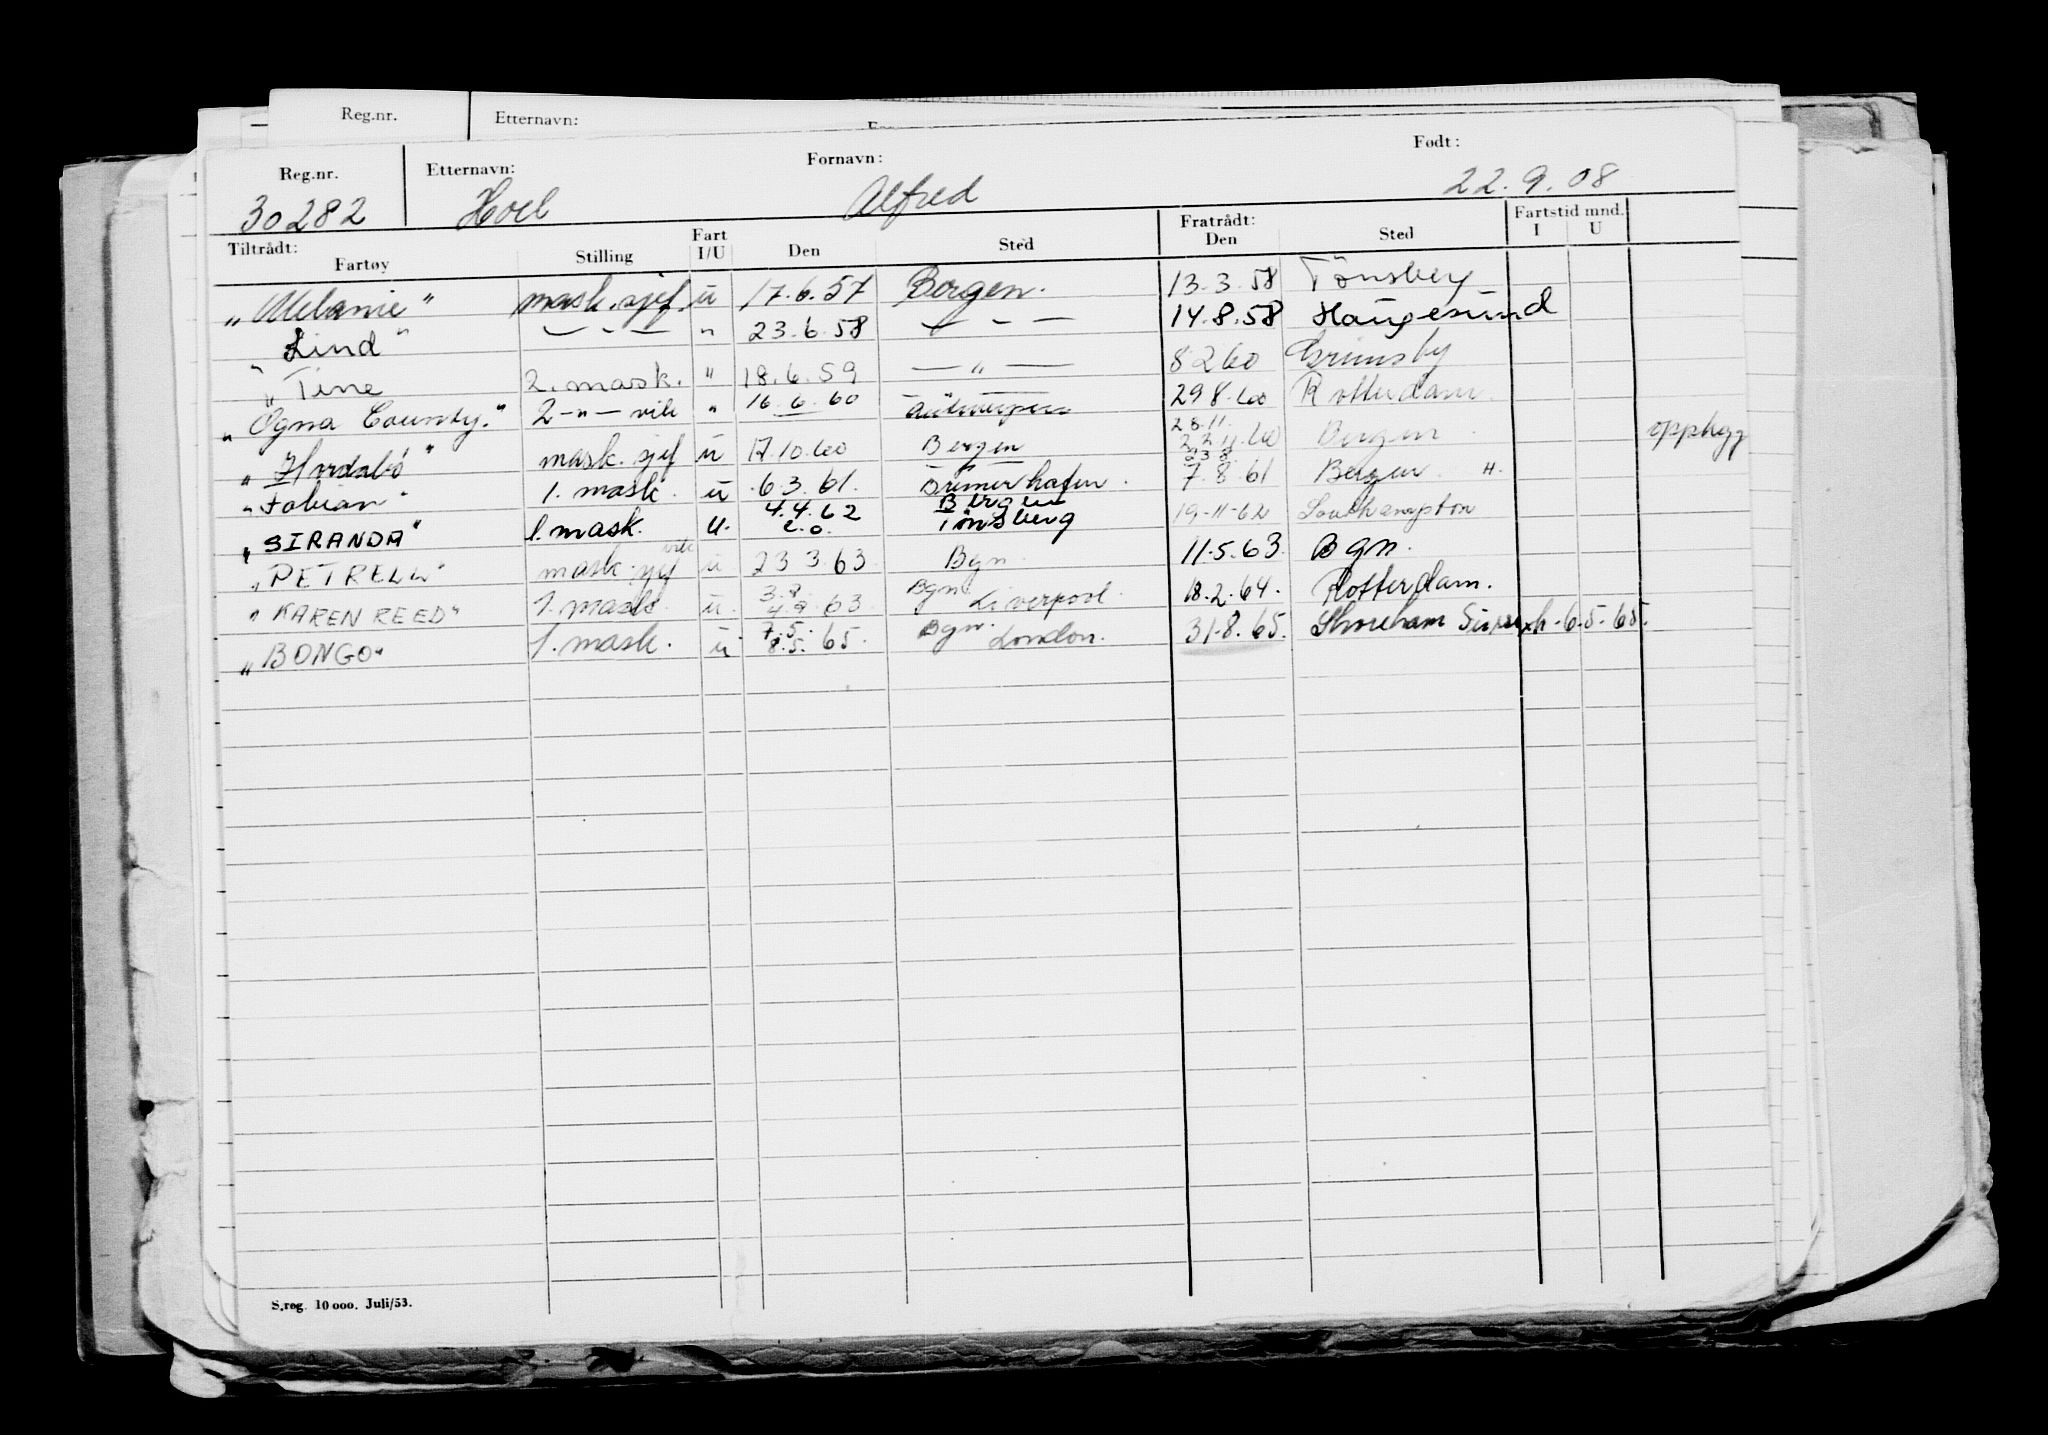 Reg.nr. Etternavn:
Reg.nr. Etternavn: Fornavn: Født:
30282 Hoel Alfred 22.9.08
Tiltrådt: Fartøy Stilling Fart I/U Den Sted Fratrådt: Den Sted Fartstid mnd. I U
„Melanie" mask.sjef. u 17.6.57 Bergen. 13.3.58 Tönsberg
"Lind" — " — " 23.6.58 — " — 14.8.58 Haugesund
"Tine 2. mask. " 18.6.59 — " — 8 2 60 Grimsby
„Ogna County." 2 —"— vik " 16.6.60 Antwerpen 29 8.60 Rotterdam.
„Hordabö" mask. sjef u 17.10.60 Bergen 22 11.60 Bergen opphugg
"Fabian" 1. mask. u 6.3.61. Bremerhafen. 7.8.61 Bergen H.
„SIRANDA" 1. mask. u. 4.4.62 Bergen Tönsberg 19-11-62 Southampton
„PETRELL" mask.sjef vik u 23 3.63 Bgn 11.5.63. Bgn.
"KAREN REED" 1. mask. u. 3.8. 4.8.63 Bgn Liverpool. 18.2.64. Rotterdam.
„BONGO" 1. mask. u 7.5. 8.5.65. Bgn. London. 31.8.65. Shoreham 6.5.65.
S.reg. 10 000. Juli/53.